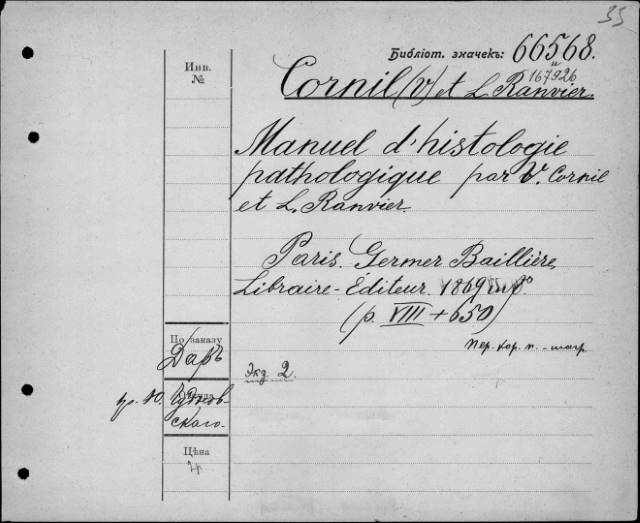 35
Библіот. значекъ: 66568.
и
167926
Инв.
№
Cornil (V) et L. Ranvier.
Manuel d'histologie
pathologique par V. Cornil
et L. Ranvier.
Paris. Germer Baillière,
Libraire-Éditeur. 1869 in 8°.
(p. VIII + 650)
Пер. кор. п.
По заказу
Даръ
Экз 2.
гр. Ю.
скаго.
Цѣна